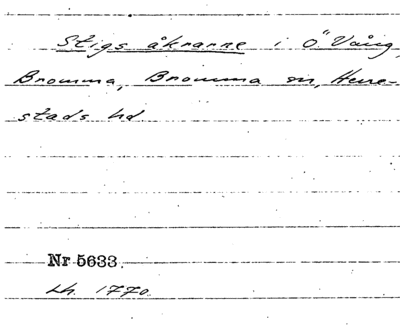 Stigs åkrarne i Ö. Vång,
Bromma, Bromma sn, Herre-
stads hd
Nr 5633.
Lh. 1770.